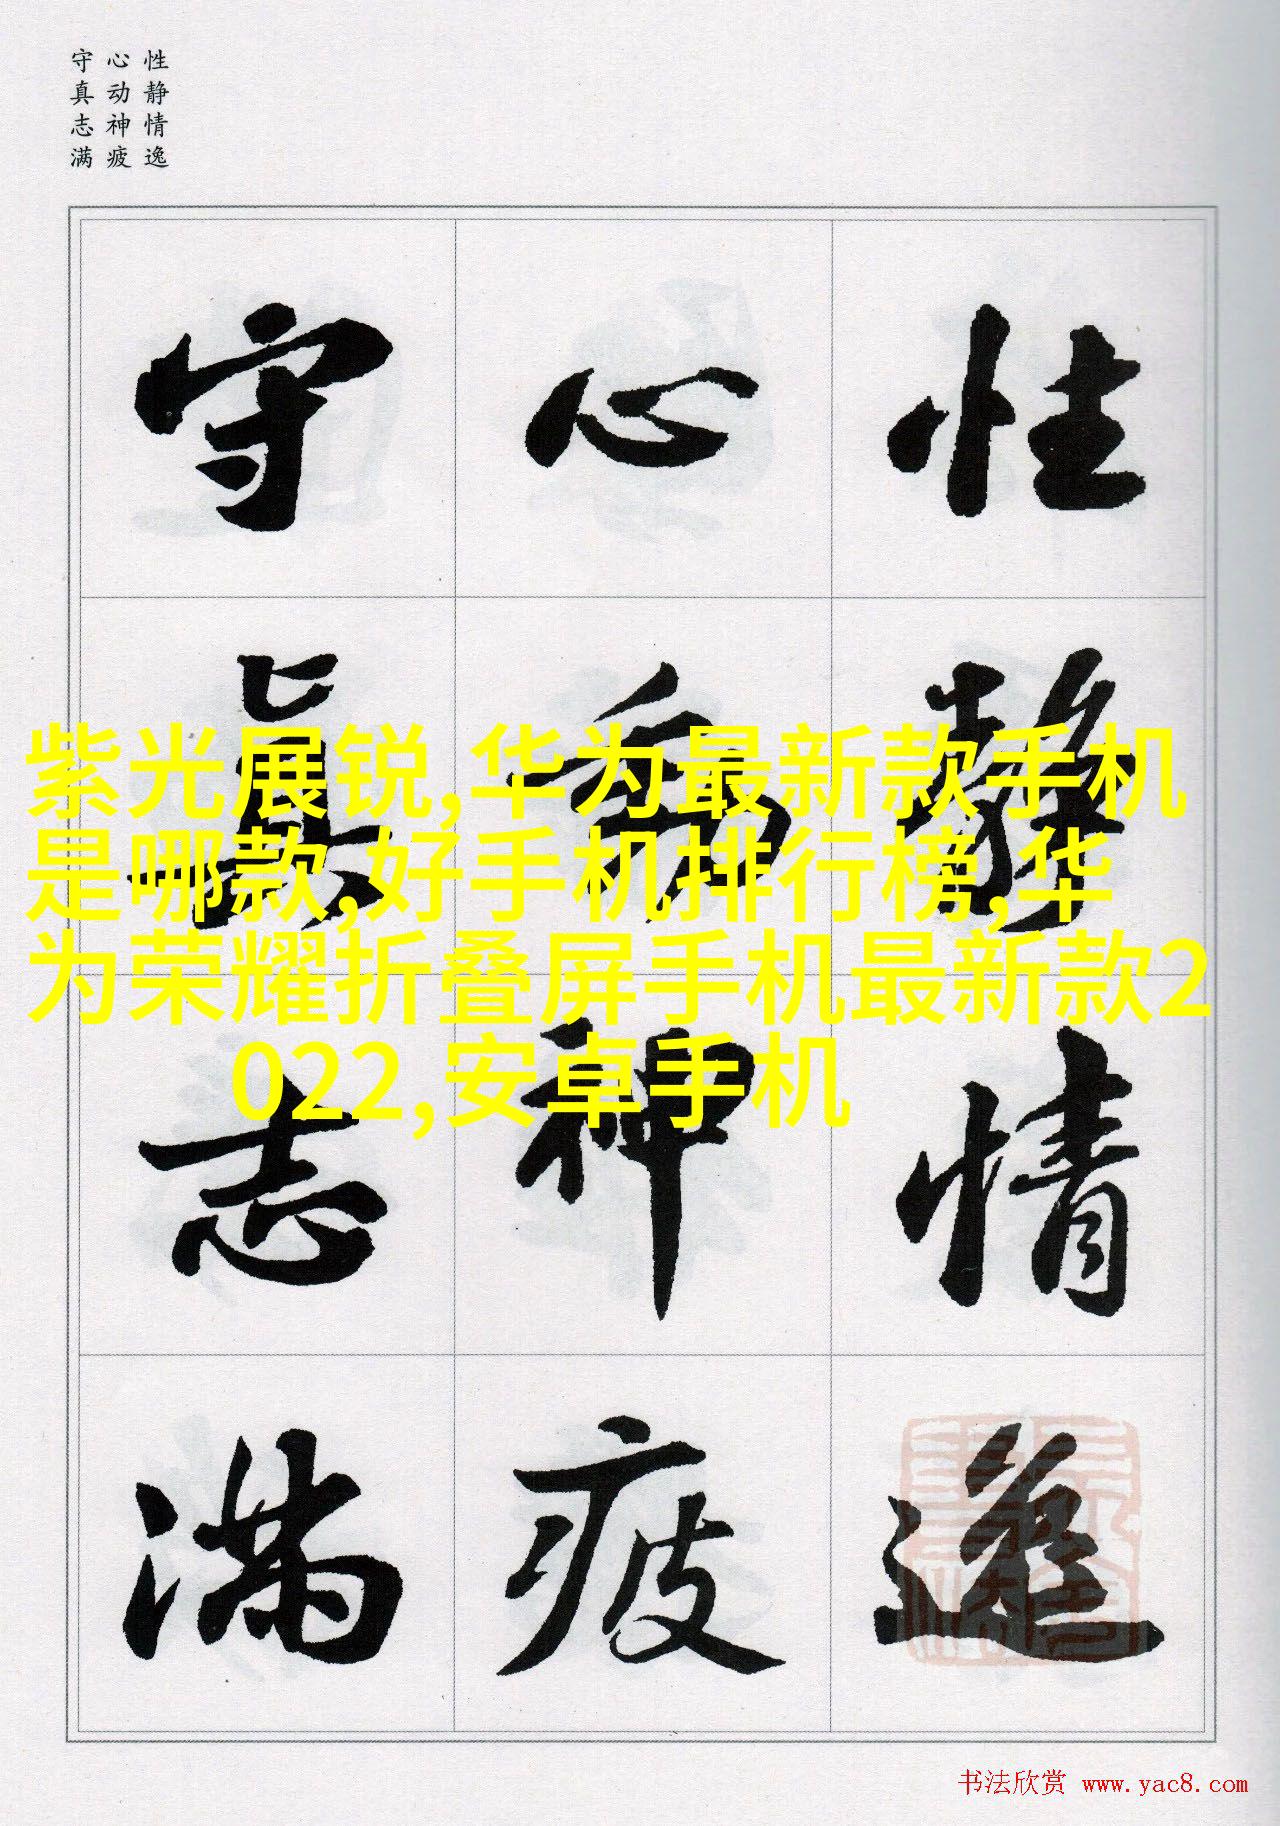 性静情逸
心动神疲
守真志满
性靜情逸
心動神疲
守真志滿
紫光展锐,华为最新款手机
是哪款,好手机排行榜,华
为荣耀折叠屏手机最新款2
022,安卓手机
书法欣赏 www.yac8.com